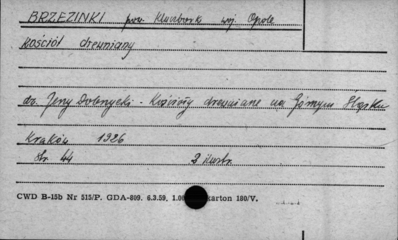 BRZEZINKI pow. Kluczbork woj. Opole
kościół drewniany
dr. Jerzy Dobrzycki - Kościoły drewniane na Górnym Śląsku
Kraków 1926
str. 44 2 ilustr.
CWD B-15b Nr 515/P. GDA-809. 6.3.59. 1.00 karton 180/V.